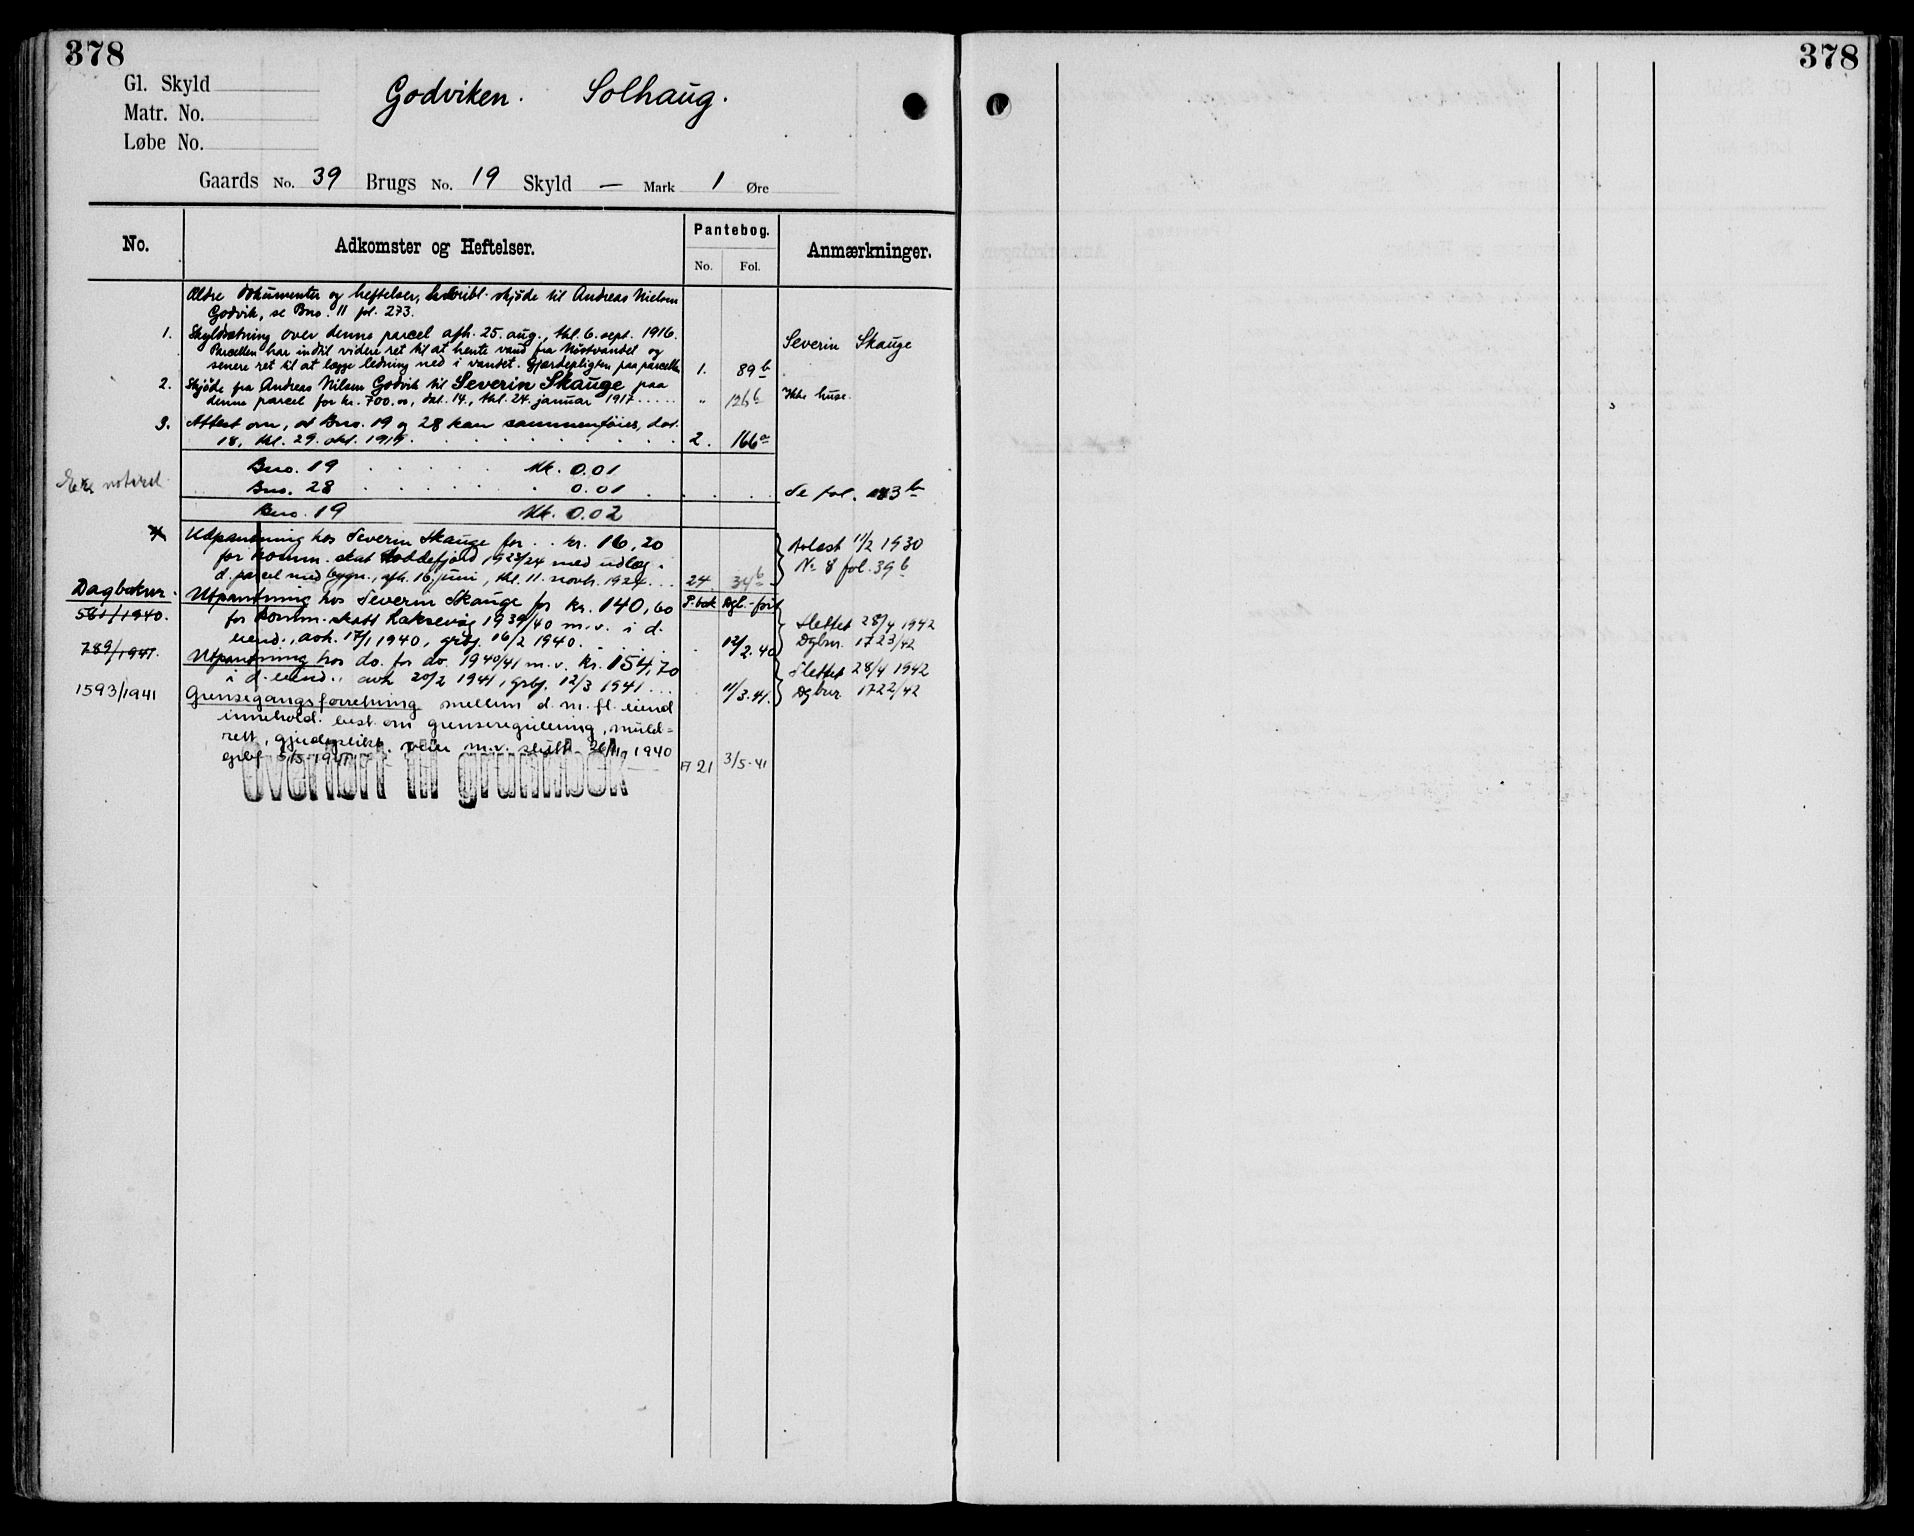 378
378
Gl. Skyld
Matr. No.
Løbe No.
Godviken. Solhaug.
Gaards No. 39 Brugs No. 19 Skyld — Mark 1 Øre
No. Adkomster og Heftelser. Pantebog. Anmærkninger.
No. Fol.
Ældre dokumenter og heftelser, skjøde til Andreas Nielsen
Godvik, se Bno. 11 fol. 273.
1. Skyldsætning over denne parcel afh. 25. aug., thl. 6. sept. 1916. Severin Skauge
Parcellen har indtil videre ret til at hente vand fra Nöstvandet og
senere ret til at lægge ledning ned i vandet. Gjærdepligten paa parcellen 1. 89 b
2. Skjøde fra Andreas Nilsen Godvik til Severin Skauge paa
denne parcel for kr. 700.00, dat. 14., thl. 24. januar 1917..... " 126 b Ikke huse.
3. Attest om, at Bno. 19 og 28 kan sammenføies, dat.
18., thl. 29. okt. 1919. 2. 166 a
Bno. 19 Mk. 0.01
Bno. 28 0.01 Se fol.
Bno. 19 Mk. 0.02
Udpantning hos Severin Skauge for .. kr. 16,20 Avlæst 11/2 1930
for komm. skat Loddefjord 1923/24 med udlæg i No 8 fol. 39 b
d. parcel med bygn., afh. 16. juni, thl. 11. novb. 1924... 24 34 b
Dagboknr. Utpantning hos Severin Skauge for kr. 140,60 P.bok Dgl.-ført
561/1940. for komm. skatt Laksevåg 1939/40 m.v. i d. Slettet 28/4 1942
eiend., avh. 17/1 1940, grbf. 16/2 1940. 12/2.40 Dgbnr. 1723/42
789/1941. Utpantning hos do. for do. 1940/41 m.v. kr. 154,70 Slettet 28/4 1942
i d. eiend., avh 20/2 1941, grbf. 12/3 1941... 11/3.41. Dgbnr. 1722/42
1593/1941 Grensegangsforretning mellem d. m. fl. eiend
innehold. best. om grenseregulering,
rett, gjerdeplikt, veier m.v. slutt. 1940
grbf. 5/5 1941 21 3/5-41
Overført til grunnbok